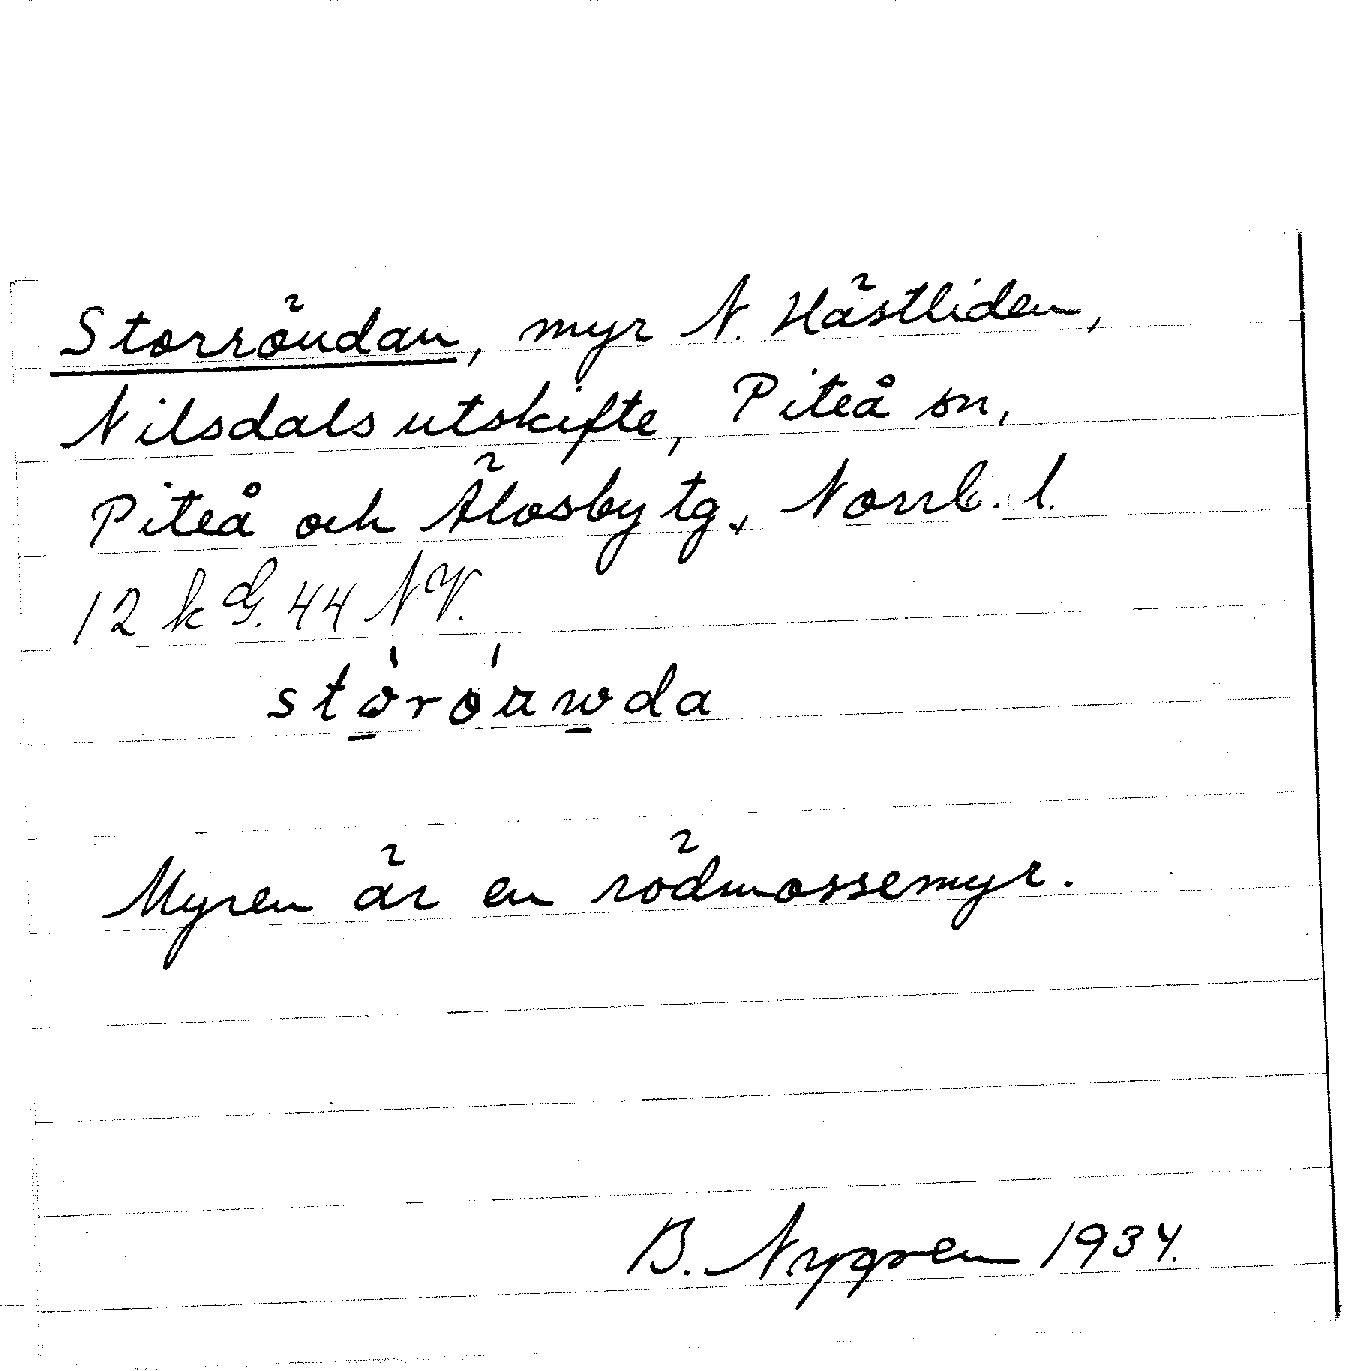 Storröudan, myr N. Hästliden,
Nilsdals utskifte, Piteå sn,
Piteå och Älvsby tg, Norrb. l.
12 k G. 44 NV.
Myren är en rödmossemyr.
B. Nygren 1934.